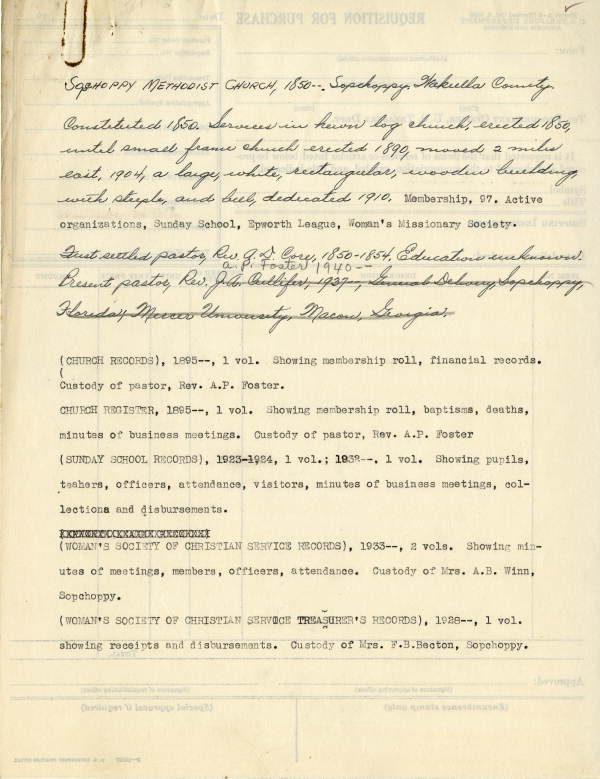 Sopchoppy Methodist Church, 1850-- Sopchoppy, Wakulla County.
Constituted 1850. Services in hewn log church, erected 1850,
until small frame church erected 1890, moved 2 miles
east, 1904, a large, white, rectangular, wooden building,
with steeple, and bell, dedicated 1910. Membership, 97. Active
organizations, Sunday School, Epworth League, Woman's Missionary Society.
First settled pastor, Rev. A.D. Core, 1850-1854. Education unknown.
A.P. Foster 1940--
Present pastor, Rev. J.C. Cullifer, 1937--, General Delivery, Sopchoppy,
Florida, Mercer University, Macon, Georgia.
(CHURCH RECORDS), 1895--, 1 vol. Showing membership roll, financial records.
(
Custody of pastor, Rev. A.P. Foster.
CHURCH REGISTER, 1895--, 1 vol. Showing membership roll, baptisms, deaths,
minutes of business meetings. Custody of pastor, Rev. A.P. Foster
(SUNDAY SCHOOL RECORDS), 1923-1924, 1 vol.; 1932--. 1 vol. Showing pupils,
teahers, officers, attendance, visitors, minutes of business meetings, col-
lectiona and disbursements.
(WOMAN'S SOCIETY OF CHRISTIAN SERVICE RECORDS), 1933--, 2 vols. Showing min-
utes of meetings, members, officers, attendance. Custody of Mrs. A.B. Winn,
Sopchoppy.
(WOMAN'S SOCIETY OF CHRISTIAN SERVICE TREASURER'S RECORDS), 1928--, 1 vol.
showing receipts and disbursements. Custody of Mrs. F.B.Becton, Sopchoppy.
REQUISITION FOR PURCHASE
Approved:
(Special approval if required)
(Encumbrance stamp only)